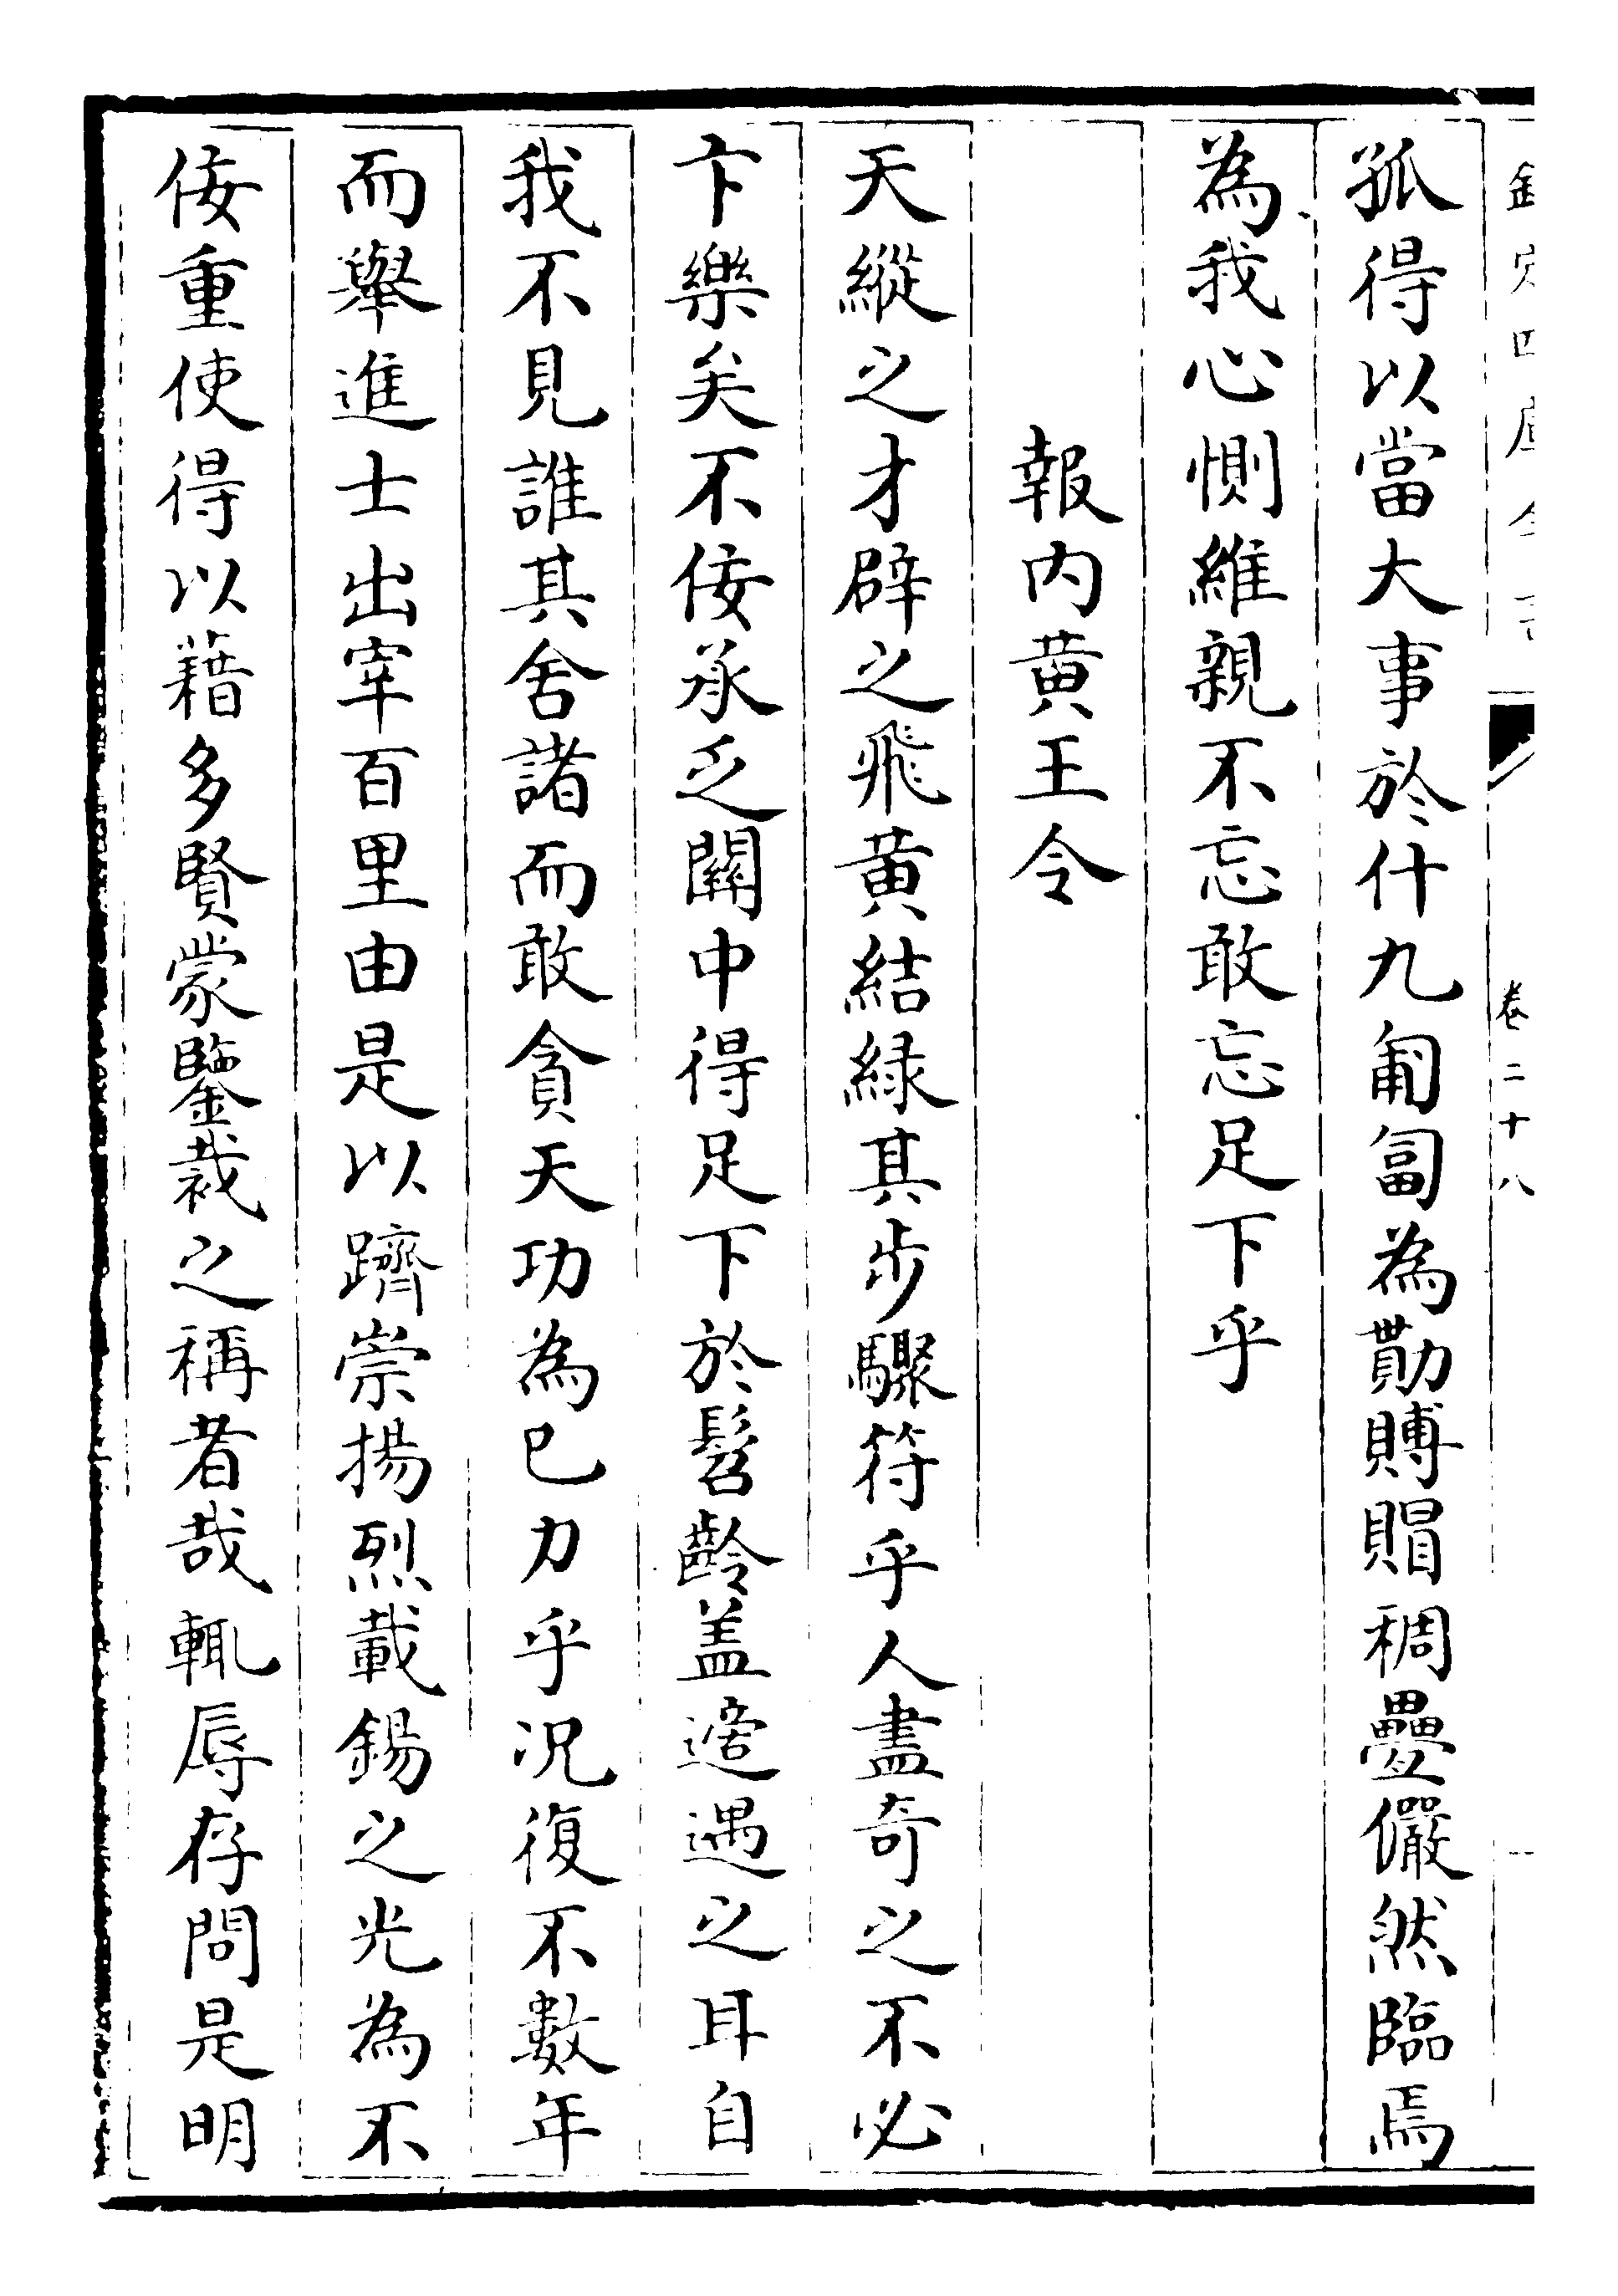 欽定四庫全書 卷二十八
孤得以當大事於什九匍匐為勩賻賵稠疊儼然臨焉
為我心惻維親不忘敢忘足下乎
報内黄王令
天縱之才辟之飛黄結綠其步驟符乎人盡奇之不必
卞樂矣不佞承乏關中得足下於髫齡盖適遇之耳自
我不見誰其舍諸而敢貪天功為已力乎况復不數年
而舉進士出宰百里由是以躋崇揚烈載錫之光為不
佞重使得以藉多賢蒙鑒裁之稱者哉輒辱存問是明